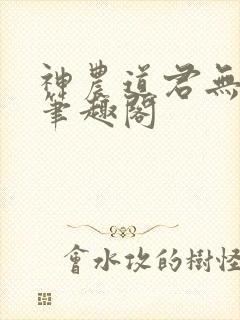 神農道君無
筆趣閣
會水攻的樹怪